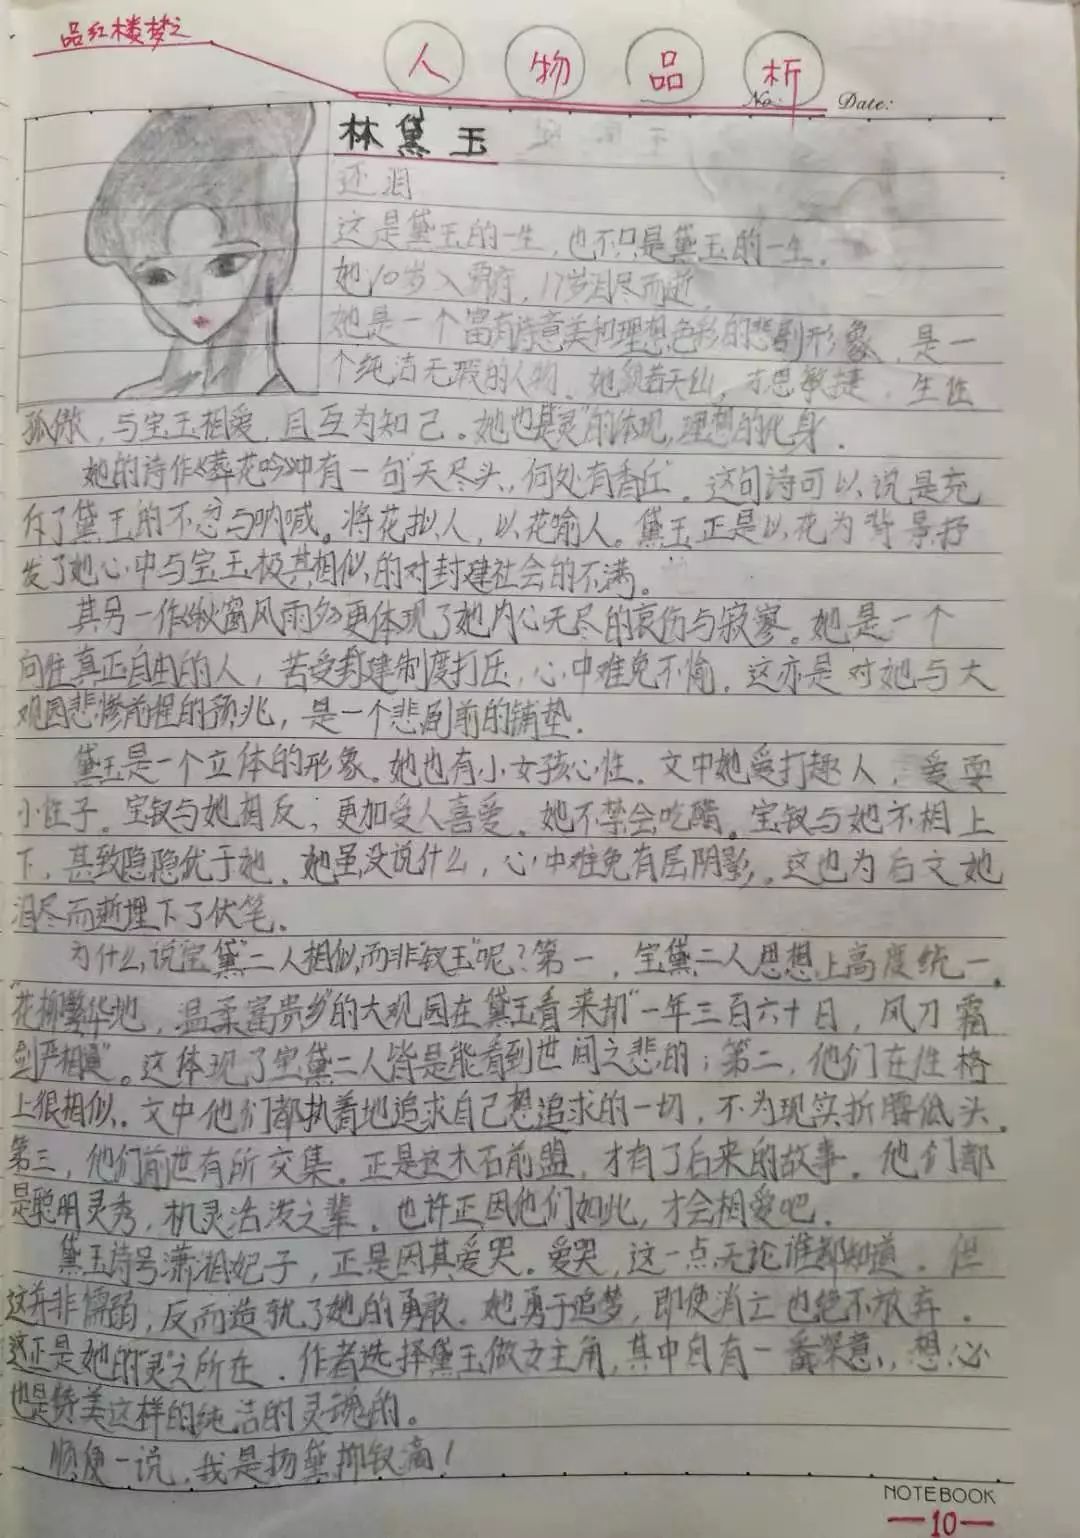 品红楼梦之
人物品析
No.: Date:
林黛玉
还泪
这是黛玉的一生,也不只是黛玉的一生.
她10岁入贾府,17岁泪尽而逝
她是一个富有诗意美和理想色彩的悲剧形象,是一
个纯洁无瑕的人物.她貌若天仙,才思敏捷,生性
孤傲,与宝玉相爱,且互为知己。她也是"灵"的体现,理想的化身.
她的诗作《葬花吟》中有一句"天尽头,何处有香丘".这句诗可以说是充
斥了黛玉的不忿与呐喊。将花拟人,以花喻人。黛玉正是以花为背景抒
发了她心中与宝玉极其相似的对封建社会的不满。
其另一作《秋窗风雨夕》更体现了她内心无尽的哀伤与寂寥。她是一个
向往真正自由的人,苦受封建制度打压,心中难免不愉.这亦是对她与大
观园悲惨前程的预兆,是一个悲剧前的铺垫.
黛玉是一个立体的形象.她也有小女孩心性.文中她爱打趣人,爱耍
小性子.宝钗与她相反,更加受人喜爱.她不禁会吃醋.宝钗与她不相上
下,甚致隐隐优于她.她虽没说什么,心中难免有层阴影.这也为后文她
泪尽而逝埋下了伏笔.
为什么说"宝黛"二人相似,而非"钗玉"呢?第一,宝黛二人思想上高度统一.
"花柳繁华地,温柔富贵乡"的大观园在黛玉看来却"一年三百六十日,风刀霜
剑严相逼"。这体现了宝黛二人皆是能看到世间之悲的;第二,他们在性格
上很相似.文中他们都执着地追求自己想追求的一切,不为现实折腰低头.
第三,他们前世有所交集.正是这木石前盟,才有了后来的故事.他们都
是聪明灵秀,机灵活泼之辈.也许正因他们如此,才会相爱吧.
黛玉诗号潇湘妃子,正是因其爱哭.爱哭,这一点无论谁都知道.但
这并非懦弱,反而造就了她的勇敢.她勇于追梦,即使消亡也绝不放弃.
这正是她的"灵"之所在.作者选择黛玉做女主角,其中自有一番深意,想必
也是赞美这样的纯洁的灵魂的。
顺便一说,我是扬黛抑钗滴!
NOTEBOOK
—10—